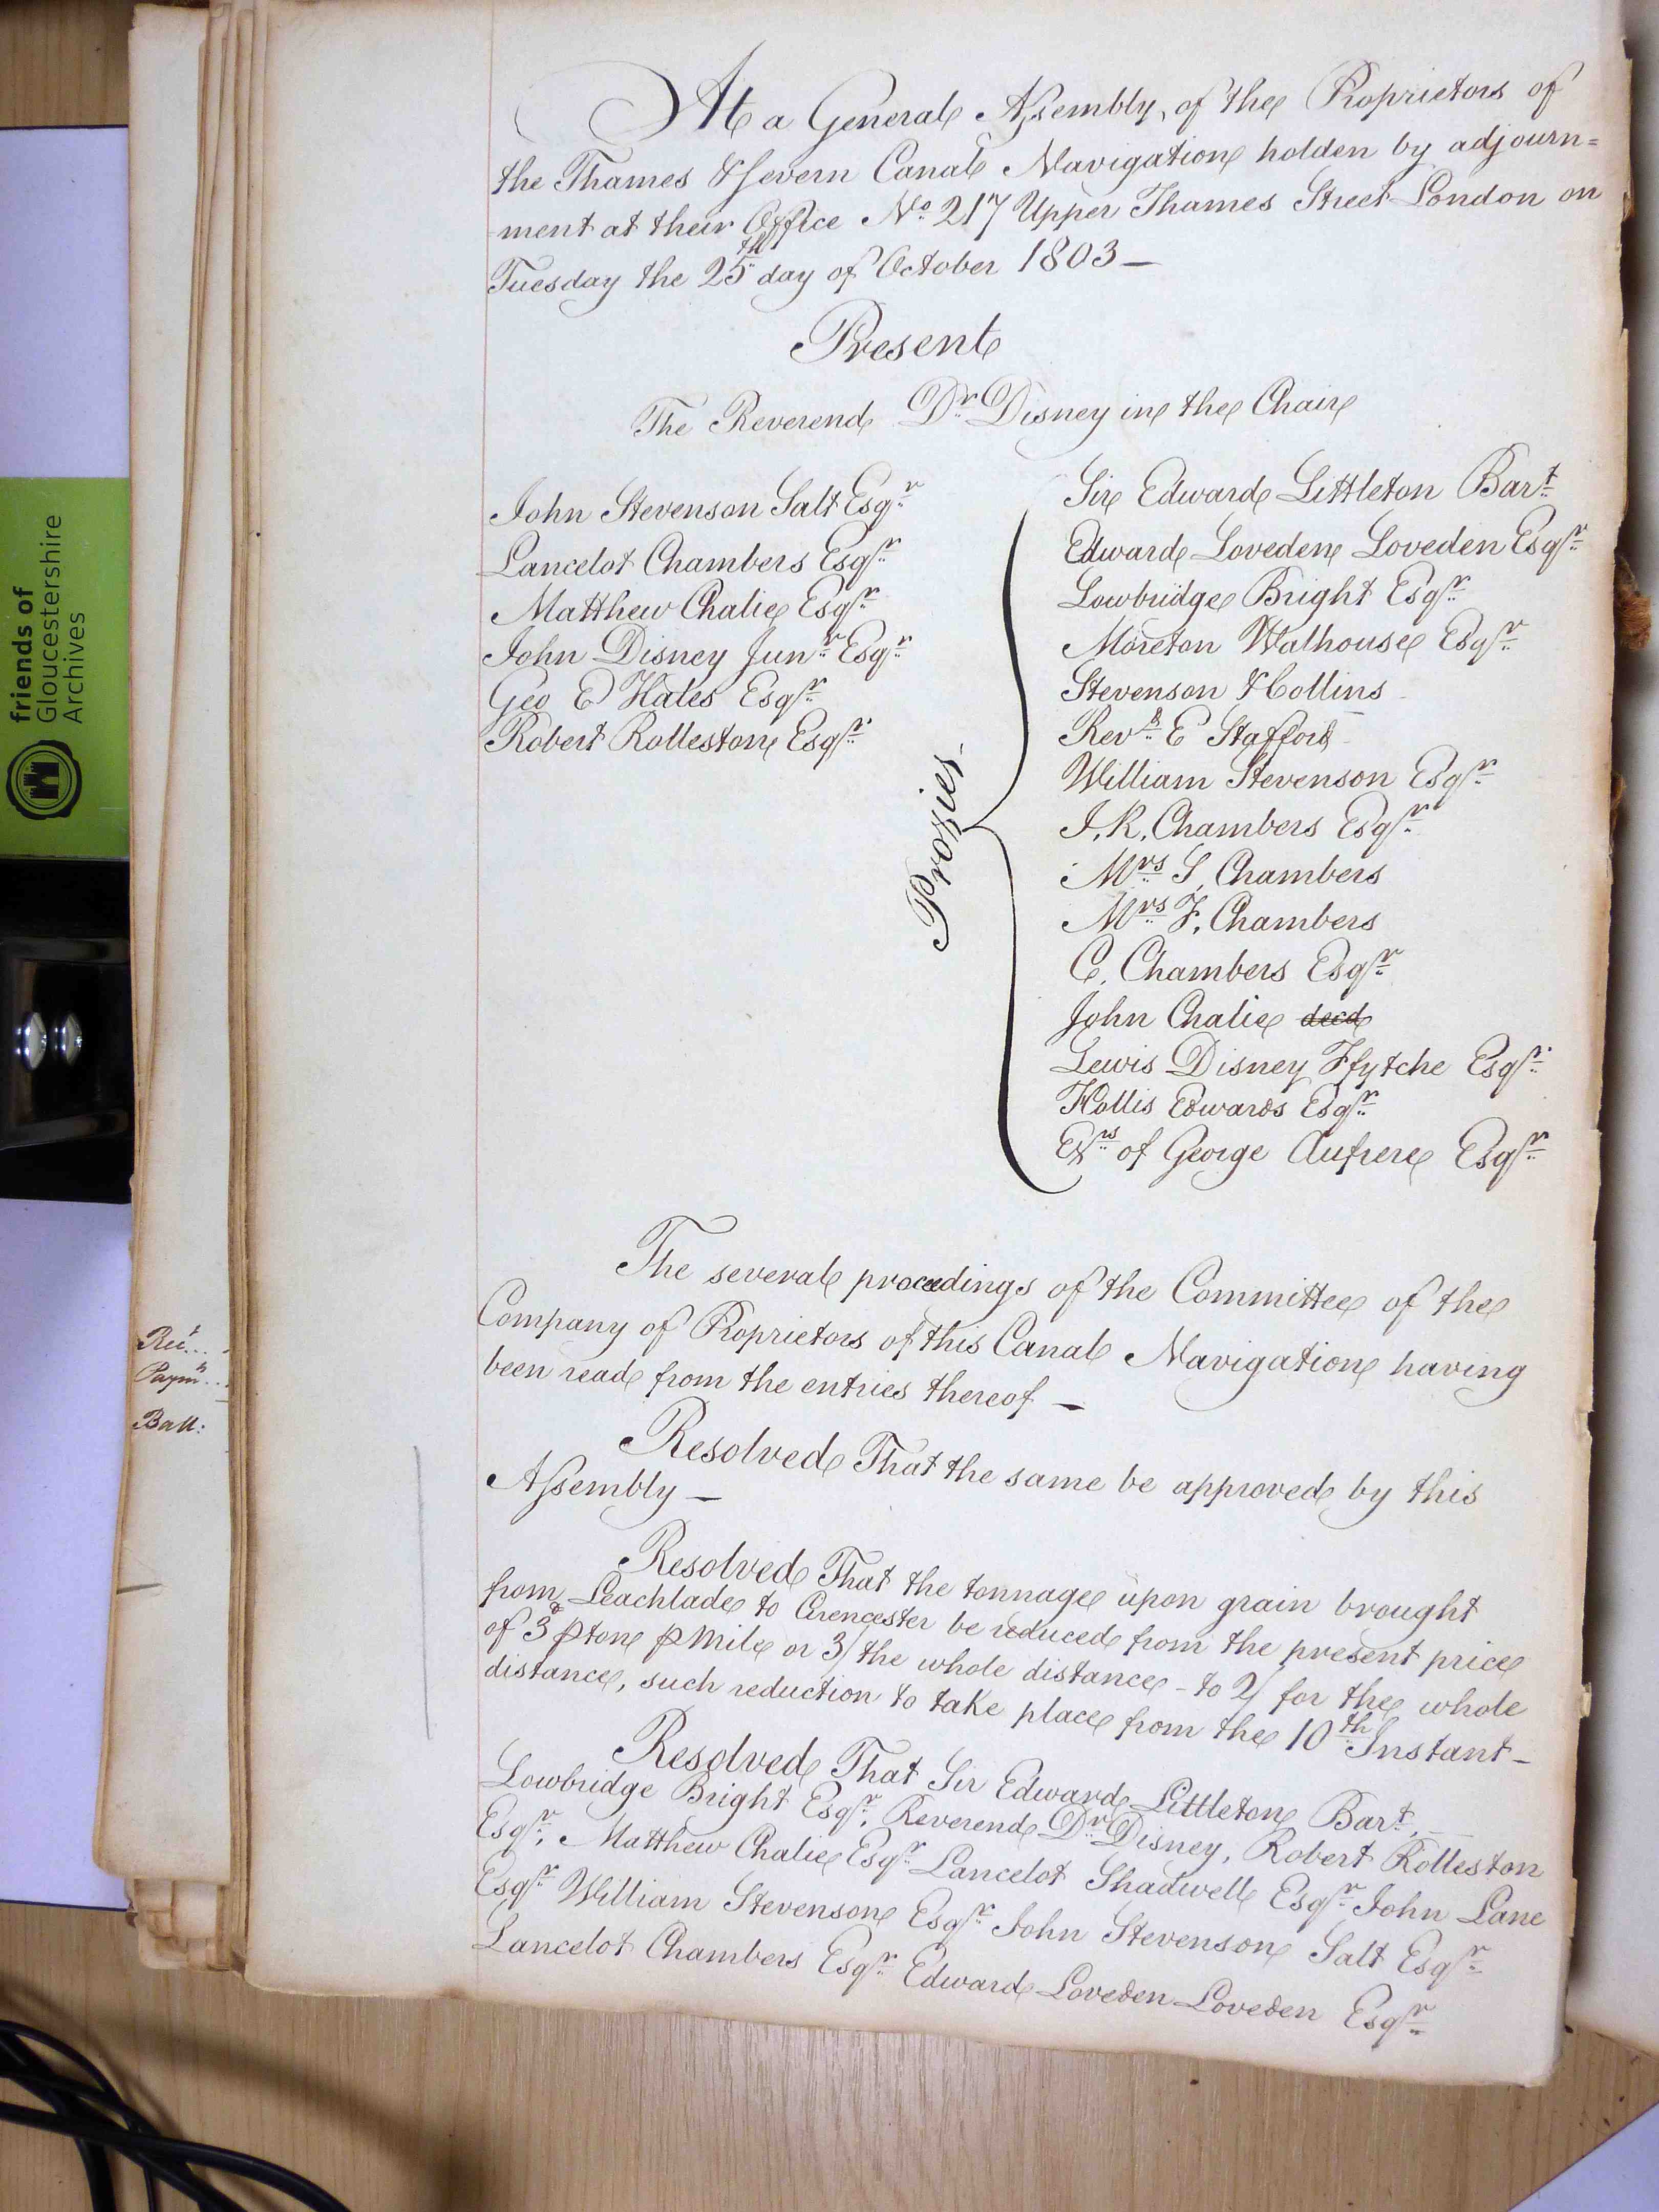 At a General Assembly, of the Proprietors of
the Thames & Severn Canal Navigation holden by adjourn=
ment at their Office No. 217 Upper Thames Street London on
Tuesday the 25th day of October 1803 —
Present
The Reverend Dr Disney in the Chair
John Stevenson Salt Esqr
Lancelot Chambers Esqr
Matthew Chalie Esqr
John Disney Junr Esqr
Geo E Hales Esqr
Robert Rolleston Esqr
Proxies
Sir Edward Littleton Bart
Edward Loveden Loveden Esqr
Lowbridge Bright Esqr
Moreton Walhouse Esqr
Stevenson & Collins
Revd E Stafford
William Stevenson Esqr
I. R. Chambers Esqr
Mrs S. Chambers
Mrs F. Chambers
C. Chambers Esqr
John Chalie decd
Lewis Disney Ffytche Esqr
Hollis Edwards Esqr
Exrs of George Aufrere Esqr
The several proceedings of the Committee of the
Company of Proprietors of this Canal Navigation having
been read from the entries thereof —
Resolved That the same be approved by this
Assembly —
Resolved That the tonnage upon grain brought
from Leachlade to Cirencester be reduced from the present price
of 3d ⅌ ton ⅌ Mile or 3/ the whole distance - to 2/ for the whole
distance, such reduction to take place from the 10th Instant —
Resolved That Sir Edward Littleton Bart. —
Lowbridge Bright Esqr, Reverend Dr Disney, Robert Rolleston
Esqr, Matthew Chalie Esqr Lancelot Shadwell Esqr John Lane
Esqr William Stevenson Esqr John Stevenson Salt Esqr
Lancelot Chambers Esqr Edward Loveden Loveden Esqr
Rect...
Paymt...
Ball:
friends of
Gloucestershire
Archives